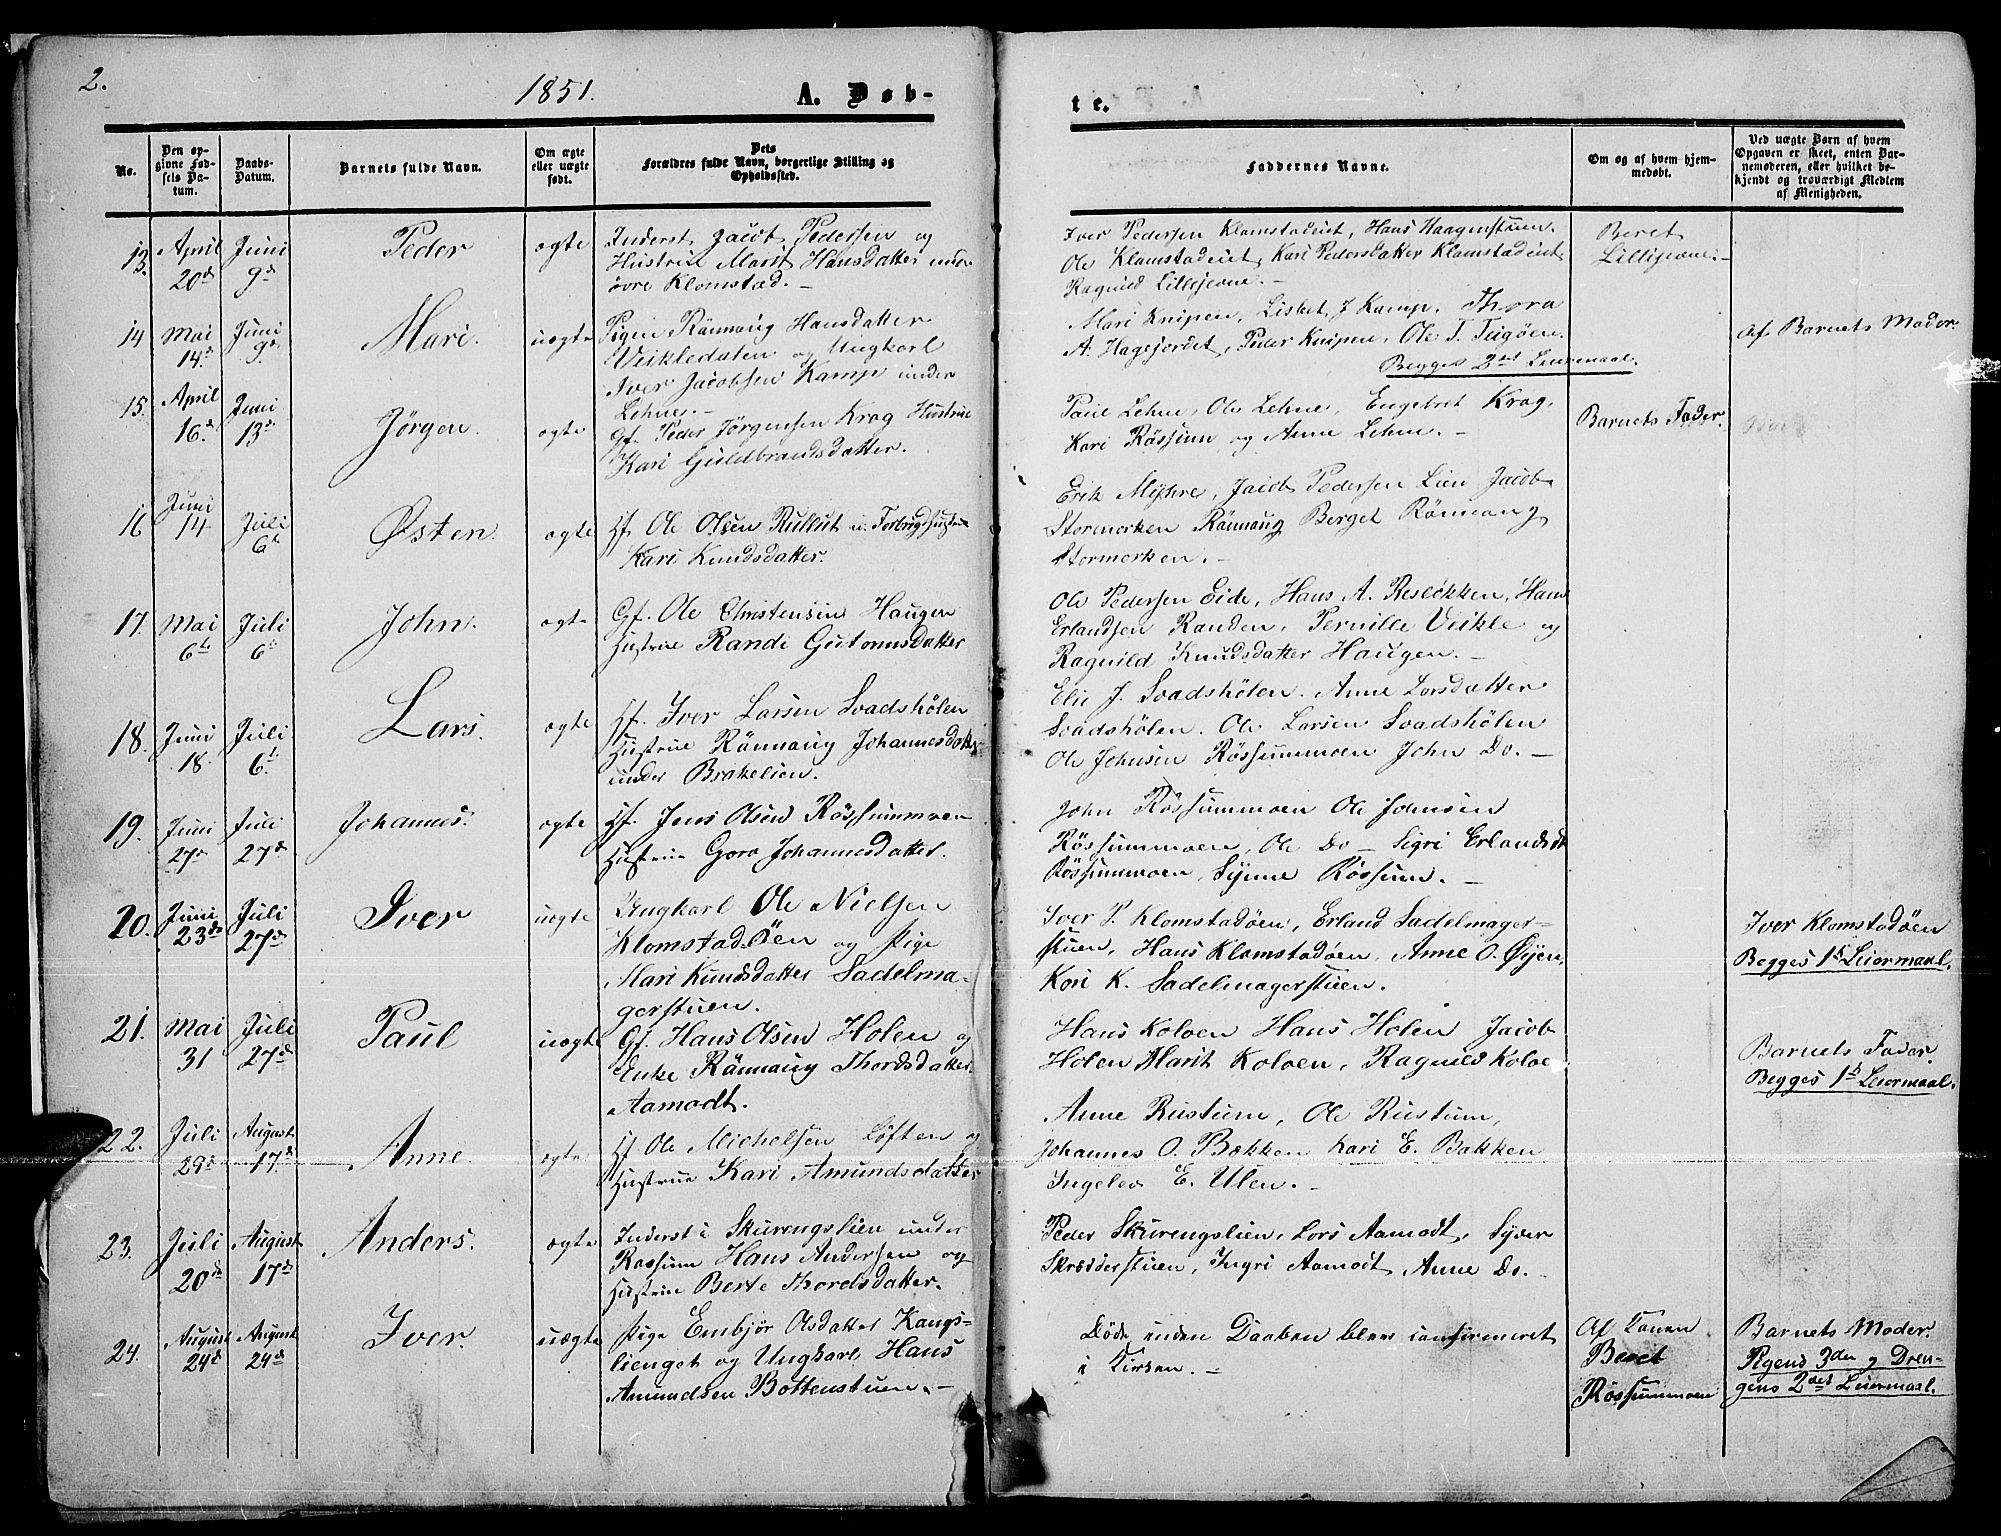 2.
1851.
A. Døb-
te.
No.
Den op-
givne Fød-
sels Da-
tum.
Daabs-
Datum.
Barnets fulde Navn.
Om ægte
eller uægte
født.
Dets
Forældres fulde Navn, borgerlige Stilling og
Opholdssted.
Faddernes Navne.
Om og af hvem hjem-
medøbt.
Ved uægte Børn af hvem
Opgaven er skeet, enten Bar-
nemoderen, eller hvilket be-
kjendt og troværdigt Medlem
af Menigheden.
13.
April
20de
Juni
9de
Peder
ægte
Inderst Jacob Pedersen og
Hustrue Marit Hansdatter under
øvre Klomstad. —
Iver Pedersen Klomstadeiet, Hans Haagenstuen.
Ole Klamstadeiet, Kari Pedersdatter Klomstadeiet
Ragnild Lillijevne. —
Beret
Lillijevne. —
14
Mai
14de
Juni
9de
Mari.
uægte
Pigen Rönnaug Hansdatter
Veikledalen og Ungkarl
Iver Jacobsen Kamp under
Lehne. —
Mari Knipen, Lisbet J Kamp, Thora
A. Hagejordet, Peder Knipen, Ole T. Teigöen.
Begges 2det Leiermaal.
Af Barnets Moder.
15.
April
16de
Juni
13de
Jörgen.
ægte
Gf. Peder Jörgensen Krog Hustrue
Kari Guldbrandsdatter.
Paul Lehne, Ole Lehne, Engebret Krog,
Kari Rössum og Anne Lehne. —
Barnets Fader.
16
Juni
14
Juli
6te
Østen.
ægte
Hf. Ole Olsen Rullut u. Forbrygd Hustrue
Kari Knudsdatter.
Erik Myhre, Jacob Pedersen Lien Jacob
Stormorken Rönnaug Berget Rönnaug
Stormorken. —
17.
Mai
6te
Juli
6te
John.
ægte
Gf. Ole Christensen Haugen
Hustrue Randi Guttormsdatter
Ole Pedersen Eide, Hans A. Reslökken, Hans
Erlandsen Randen, Pernille Veikle og
Ragnild Knudsdatter Haugen. —
18.
Juni
18.
Juli
6te
Lars.
ægte
Hf. Iver Larsen Svadshölen
Hustrue Rönnaug Johannesdatter
under Brakelien.
Elie J. Svadshölen. Anne Larsdatter
Svadshölen. Ole Larsen Svadshölen
Ole Johnsen Rössummoen John Do. —
19.
Juni
27de
Juli
27de
Johannes.
ægte
Hf. Jens Olsen Rössummoen
Hustrue Goro Johannesdatter.
John Rössummoen Ole Johnsen
Rössummoen, Ole Do — Sigri Erlandsdt
Rössummoen, Synne Rössum. —
20.
Juni
23de
Juli
27de
Iver
uægte
Ungkarl Ole Nielsen
Klomstadöen og Pige
Mari Knudsdatter Sadelma-
gerstuen.
Iver P. Klomstadöen, Erland Sadelmager-
stuen, Hans Klomstadöen, Anne O. Öyen,
Kari K. Sadelmagerstuen.
Iver Klomstadöen
Begges 1st Leiermaal.
21.
Mai
31
Juli
27de
Paul
uægte
Gf. Hans Olsen Holen og
Enke Rönnaug Thordsdatter
Aamodt.
Hans Kolven Hans Holen Jacob
Holen Marit Kolven, Ragnild Kolve
Barnets Fader.
Begges 1st Leiermaal.
22.
Juli
29de
August
17de
Anne.
ægte
Hf Ole Michelsen Löften og
Hustrue Kari Amundsdatter
Anne Rustum, Ole Rustum,
Johannes O. Bakken Kari E. Bakken
Ingeleo E. Ulen. —
23.
Juli
20de
August
17de
Anders.
ægte
Inderst i Skurengslien under
Rossum Hans Andersen og
Hustrue Berte Thordsdatter.
Peder Skurengslien, Lars Aamodt, Syver
Skrædderstuen, Ingri Aamodt, Anne Do. —
24.
August
24de
August
24de
Iver.
uægte
Pige Embjör Olsdatter Kongs-
lienget og Ungkarl Hans
Amundsen Bottenstuen. —
Döde inden Daaben blev confirmeret
i Kirken. —
Af Konen
Beret
Rössummoen
Barnets Moder.
Pigens 3die og Dren-
gens 2det Leiermaal.